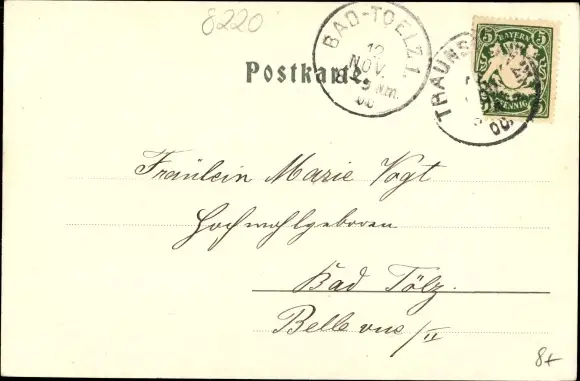 8220
BAD-TOELZ.1.
12
NOV.
Nm.
00
BAYERN
5 5
PFENNIG
TRAUNS
00
Postkarte.
Fräulein Marie Vogt
Hochwohlgeboren
Bad Tölz.
Bellevue/II
8+